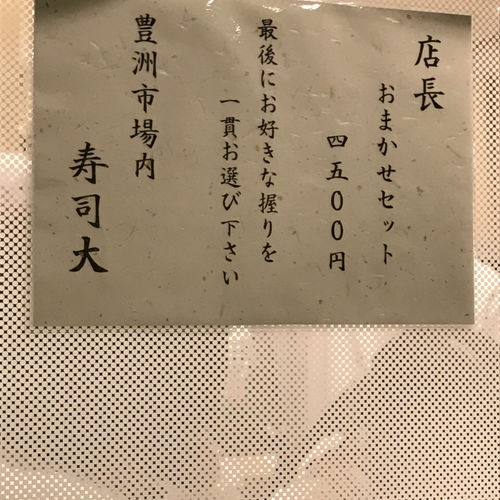 店長
おまかせセット
四五００円
最後にお好きな握りを
一貫お選び下さい
豊洲市場内
寿司大